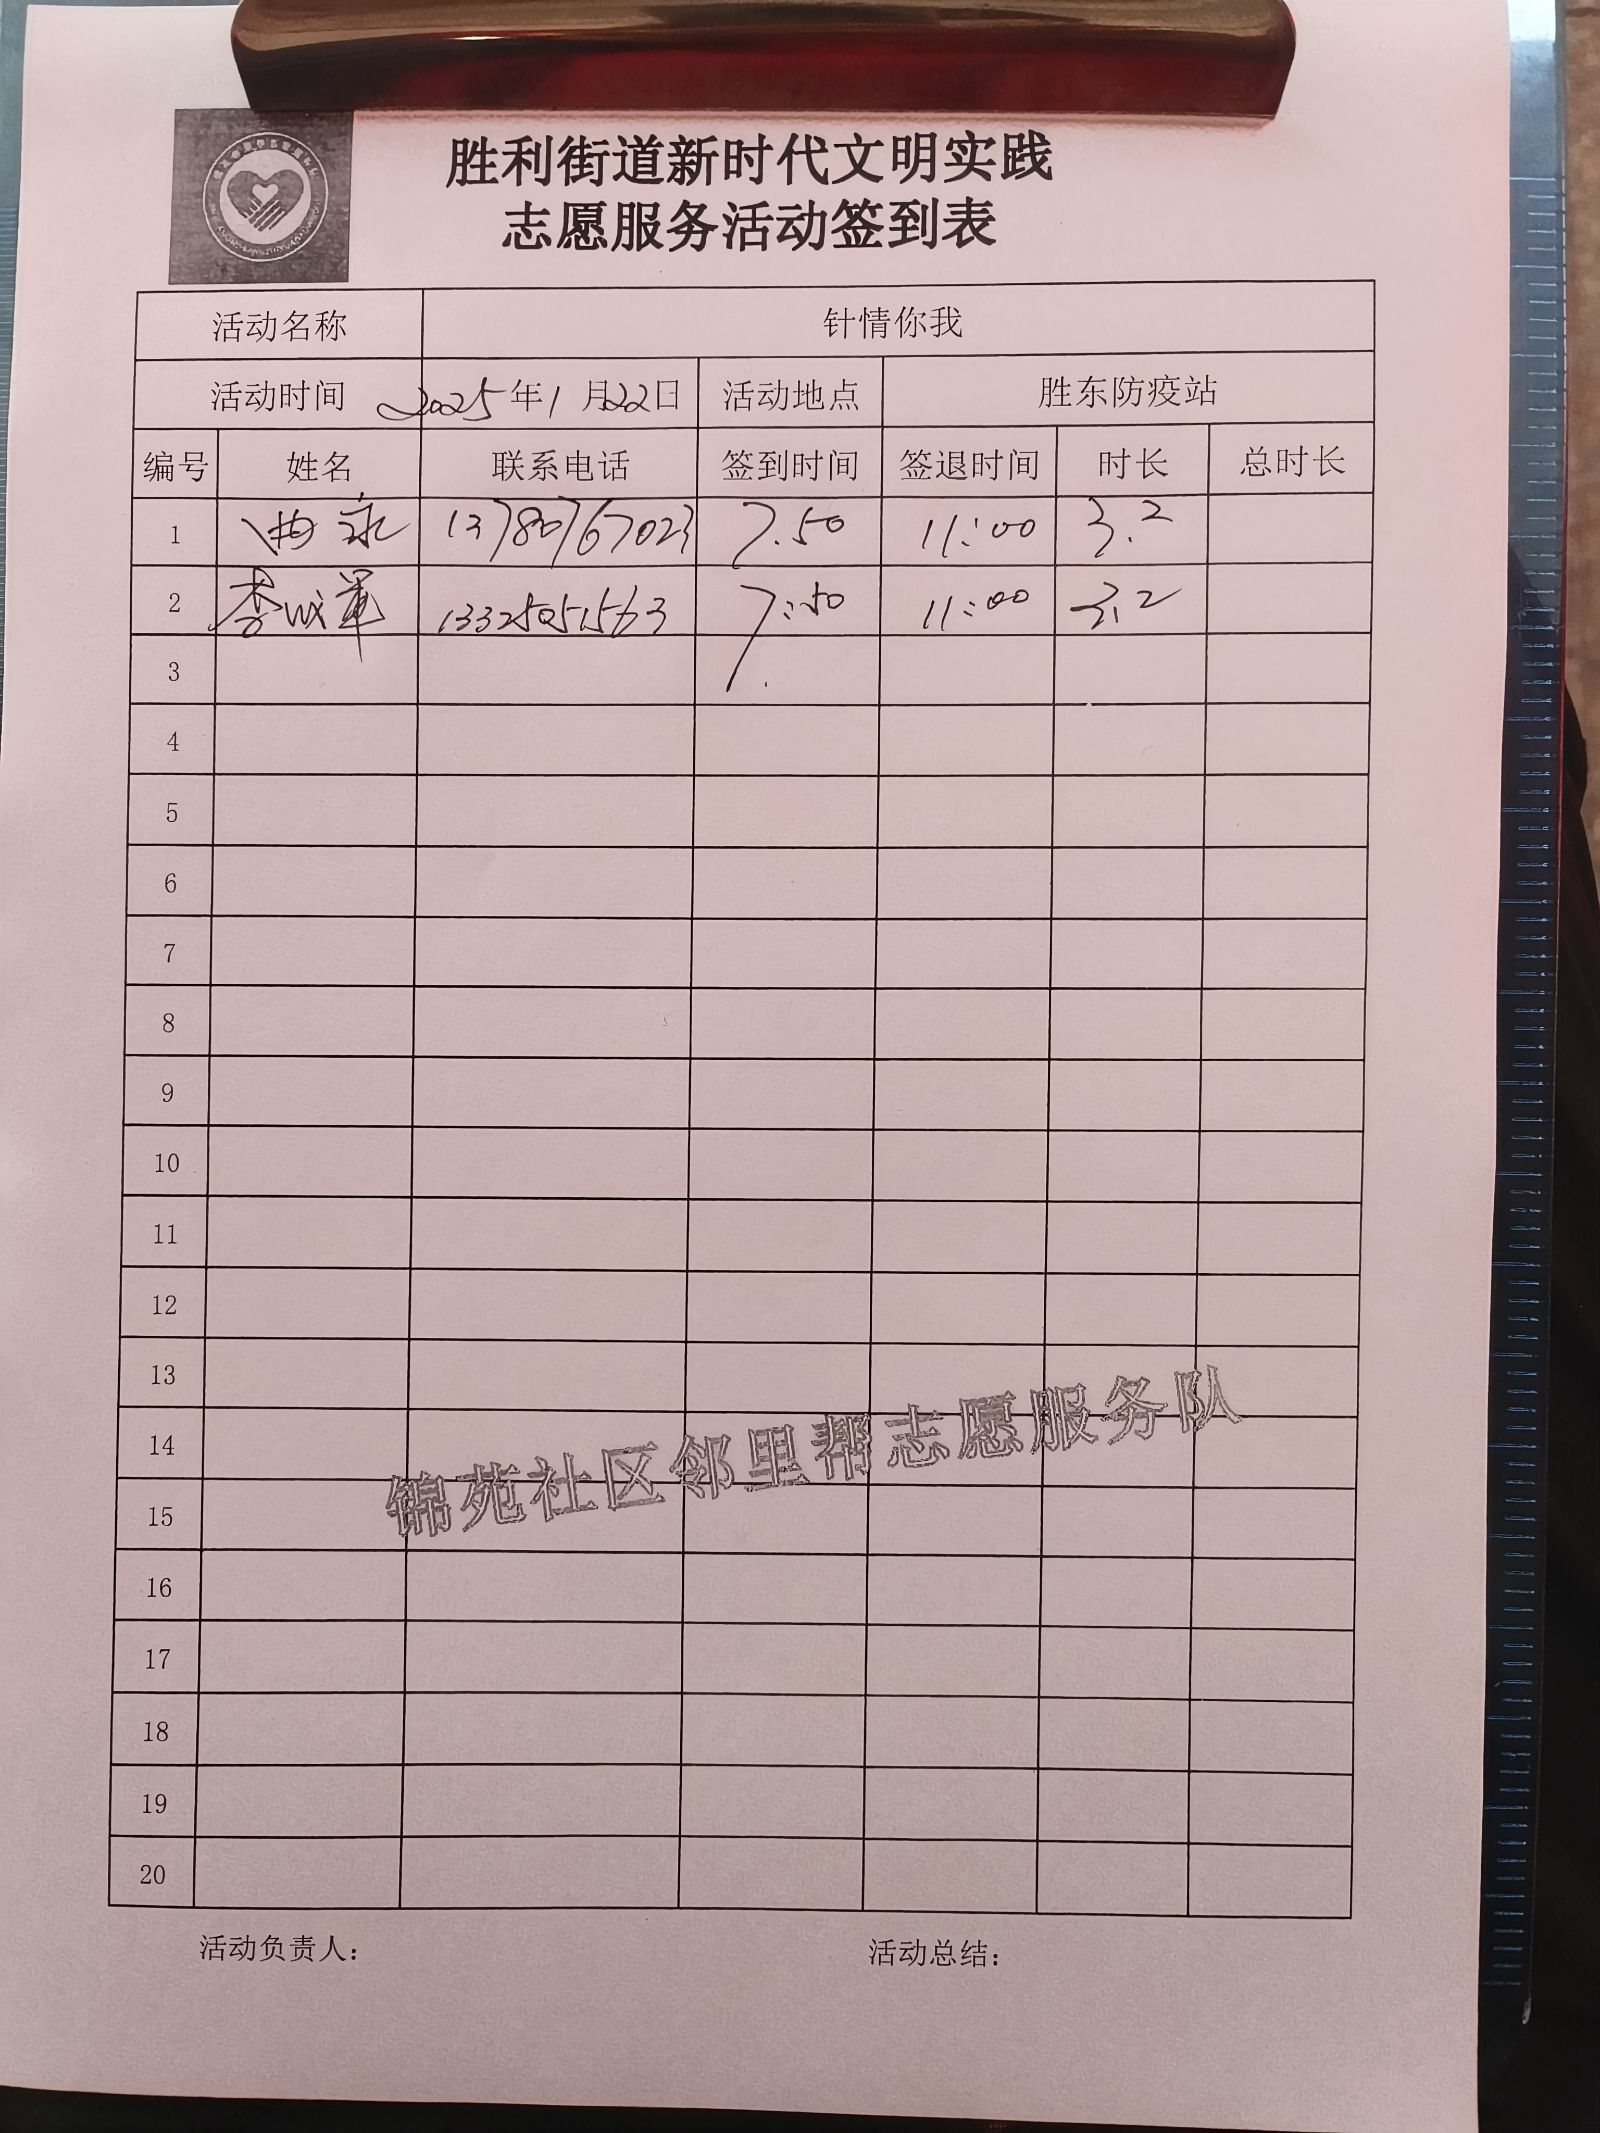 胜利街道新时代文明实践
志愿服务活动签到表
活动名称 针情你我
活动时间 2025年1月22日 活动地点 胜东防疫站
编号 姓名 联系电话 签到时间 签退时间 时长 总时长
1 曲永 13780767023 7.50 11:00 3.2
2 李成军 13325051563 7:50 11:00 3.2
3 7.
4
5
6
7
8
9
10
11
12
13
14
锦苑社区邻里帮志愿服务队
15
16
17
18
19
20
活动负责人： 活动总结：